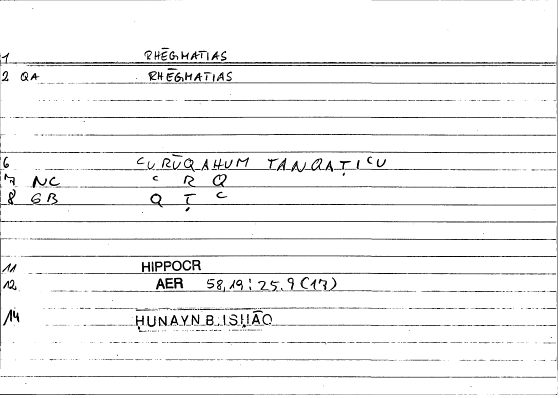 1 RHĒGMATIAS
2 QA RHĒGMATIAS
6 ʿURŪQAHUM TANQAṬIʿU
7 NC ʿ R Q
8 GB Q Ṭ ʿ
11 HIPPOCR
12 AER 58,19 : 25.9 (17)
14 ḤUNAYN B. ISḤĀQ